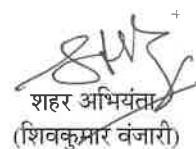 शहर अभियंता
(शिवकुमार वंजारी)